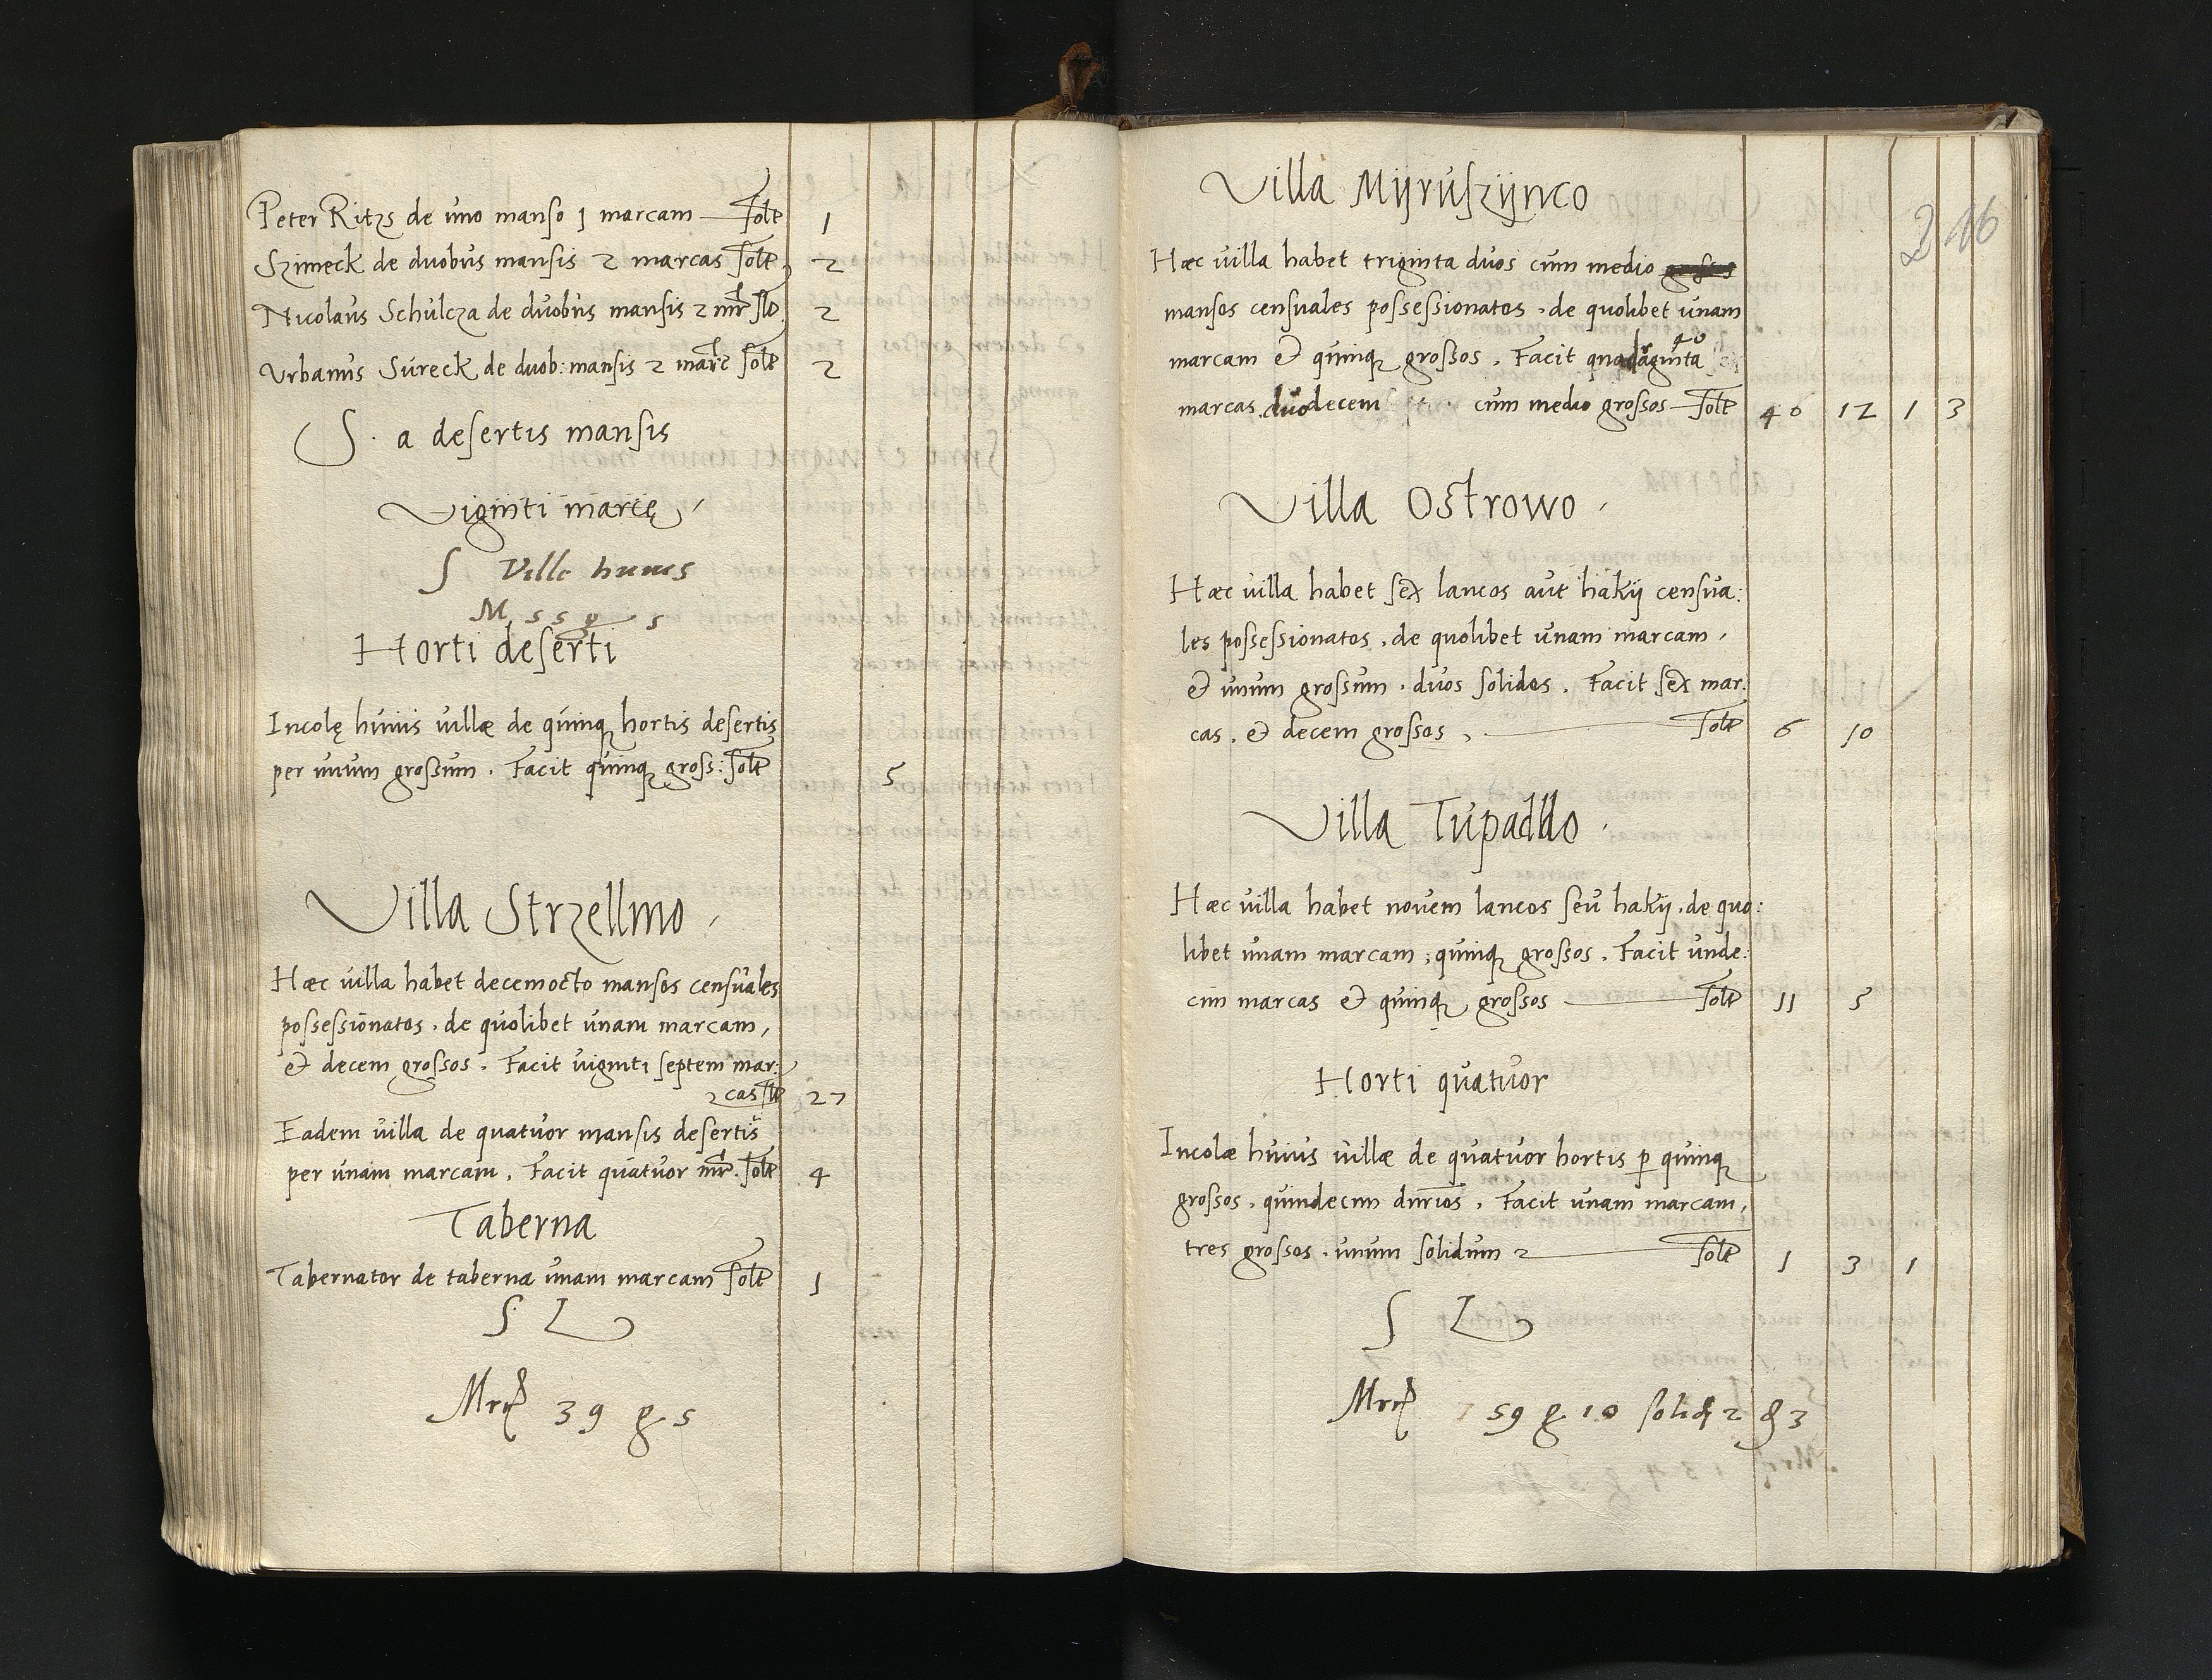 Peter Ritzs de uno manso 1 marcam solt 1
Szimeck de duobus mansis 2 marcas solt 2
Nicolaus Schulcza de duobus mansis 2 mr slt 2
Urbanus Sureck de duob: mansis 2 marc solt 2
S. a desertis mansis
Viginti marcę
S Ville huius
M 55 g 5
Horti deserti
Incolę huius villæ de quinq hortis desertis
per unum grossum. Facit quinq gross: solt 5
Villa Strzellmo
Hæc villa habet decemocto mansos censuales
possessionatos. de quolibet unam marcam,
et decem grossos. Facit viginti septem mar:
cas slt 27
Eadem villa de quatuor mansis desertis
per unam marcam. Facit quatuor mr. solt 4
Taberna
Tabernator de taberna unam marcam solt 1
S L
Mrc 39 g 5
Villa Mÿruszÿnco
216
Hæc villa habet triginta duos cum medio
mansos censuales possessionatos. de quolibet unam
marcam et quinq grossos. Facit quadraginta
marcas duodecem cum medio grossos solt 40 12 1 3
Villa Ostrowo
Hæc villa habet sex lancos aut hakij censua:
les possessionatos. de quolibet unam marcam,
et unum grossum. duos solidos. Facit sex mar:
cas. et decem grossos solt 6 10
Villa Tupaddo
Hæc villa habet novem lancos seu hakij. de quo:
libet unam marcam, quinq grossos. Facit unde:
cim marcas et quinq grossos solt 11 5
Horti quatuor
Incolæ huius villæ de quatuor hortis p quinq
grossos. quindecim dnrios. Facit unam marcam,
tres grossos. unum solidum solt 1 3 1
S L
Mrc 59 g 10 solid 2 d 3